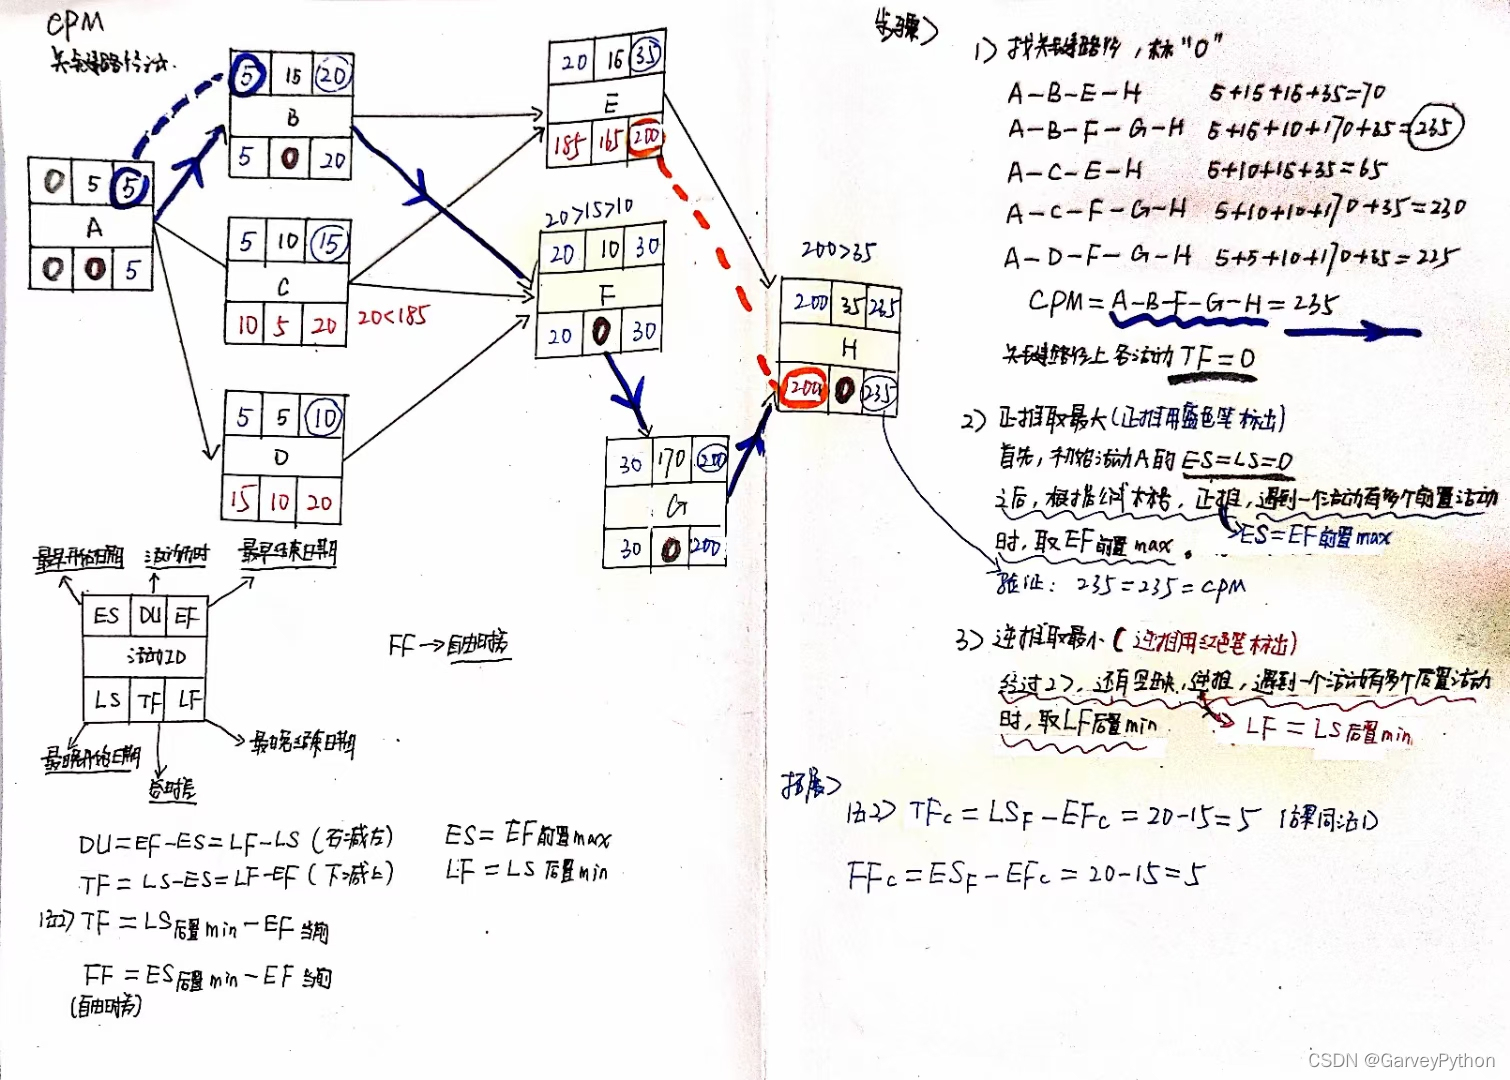 CPM
关键路径法.
5 15 20
B
5 0 20
0 5 5
A
0 0 5
5 10 15
C
10 5 20
20<185
5 5 10
D
15 10 20
20 15 35
E
185 165 200
20>15>10
20 10 30
F
20 0 30
30 170 200
G
30 0 200
200>35
200 35 235
H
200 0 235
最早开始日期 活动历时 最早结束日期
ES DU EF
活动ID
LS TF LF
最晚开始日期 最晚结束日期
总时差
FF→自由时差
DU=EF-ES=LF-LS (右减左)
TF=LS-ES=LF-EF (下减上)
法2) TF=LS后置min-EF当前
FF=ES后置min-EF当前
(自由时差)
ES=EF前置max
LF=LS后置min
步骤>
1) 找关键路径, 标"0"
A-B-E-H 5+15+15+35=70
A-B-F-G-H 5+15+10+170+35=235
A-C-E-H 5+10+15+35=65
A-C-F-G-H 5+10+10+170+35=230
A-D-F-G-H 5+5+10+170+35=225
CPM=A-B-F-G-H=235
关键路径上各活动TF=0
2) 正推取最大(正推用蓝色笔标出)
首先, 初始活动A的ES=LS=0
之后, 根据公式, 正推, 遇到一个活动有多个前置活动
时, 取EF前置max。
ES=EF前置max
验证: 235=235=CPM
3) 逆推取最小(逆推用红色笔标出)
经过2), 还有空缺, 逆推, 遇到一个活动有多个后置活动
时, 取LF后置min
LF=LS后置min
拓展>
法2) TFc=LSF-EFc=20-15=5 (结果同法1)
FFc=ESF-EFc=20-15=5
CSDN @GarveyPython